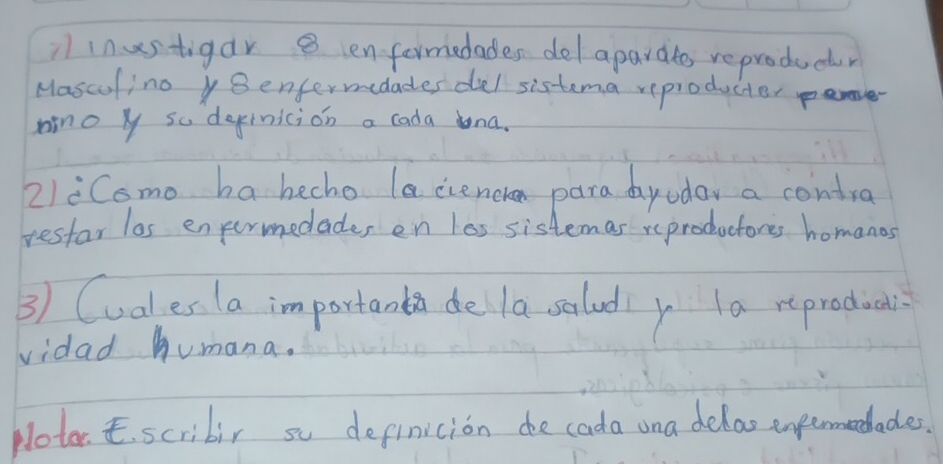 1) investigar 8 enfermedades del aparato reproductor
Masculino y 8 enfermedades del sistema reproductor
nino y su definición a cada una.
2) ¿Como ha hecho la ciencia para ayudar a contra
restar las enfermedades en los sistemas reproductores homanos
3) Cual es la importantia de la salud y la reproducti-
vidad humana.
Nota. Escribir su definición de cada una delas enfermedades.